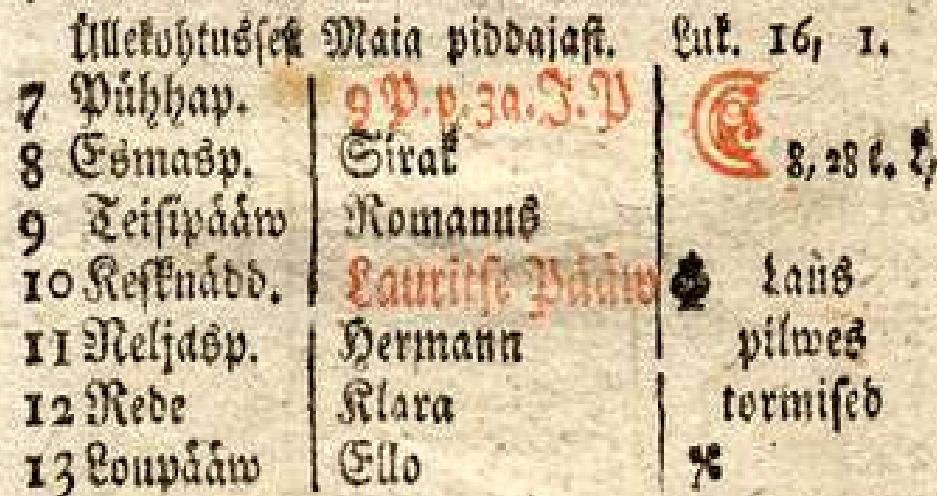 Üllekohtussest Maia piddajast. Luk. 16, 1.
7 Pühhap. 9 P. p. 3a. J. P
8 Esmasp. Sirak 8, 28 l. L,
9 Teisipääw Romanus
10 Kesknädd. Lauritse Pääw Laus
11 Neljasp. Hermann pilwes
12 Rede Klara tormised
13 Loupääw Ello